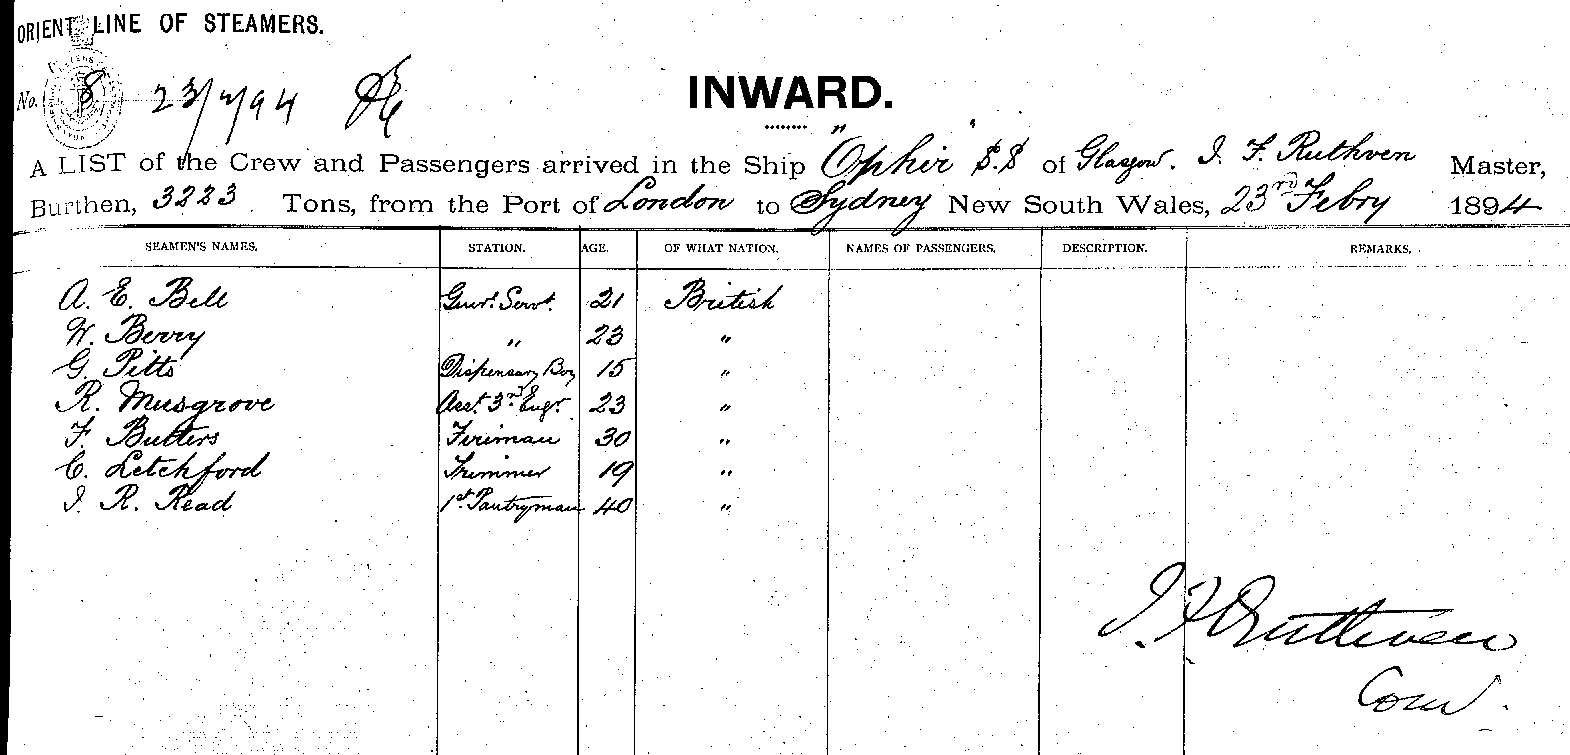 ORIENT LINE OF STEAMERS.
No. 8 23/2/94
INWARD.
A LIST of the Crew and Passengers arrived in the Ship "Ophir" S.S of Glasgow. J. F. Ruthven Master,
Burthen, 3223. Tons, from the Port of London to Sydney New South Wales, 23rd Febry 1894
SEAMEN'S NAMES. STATION. AGE. OF WHAT NATION. NAMES OF PASSENGERS. DESCRIPTION. REMARKS.
A. E. Bell Genl. Servt. 21 British
W. Berry " 23 "
G. Pitts Dispensary Boy 15 "
R. Musgrove Asst. 3rd Engr. 23 "
F. Butters Fireman 30 "
C. Letchford Trimmer 19 "
J. R. Read 1st Pantryman 40 "
J. F. Ruthven
Com.